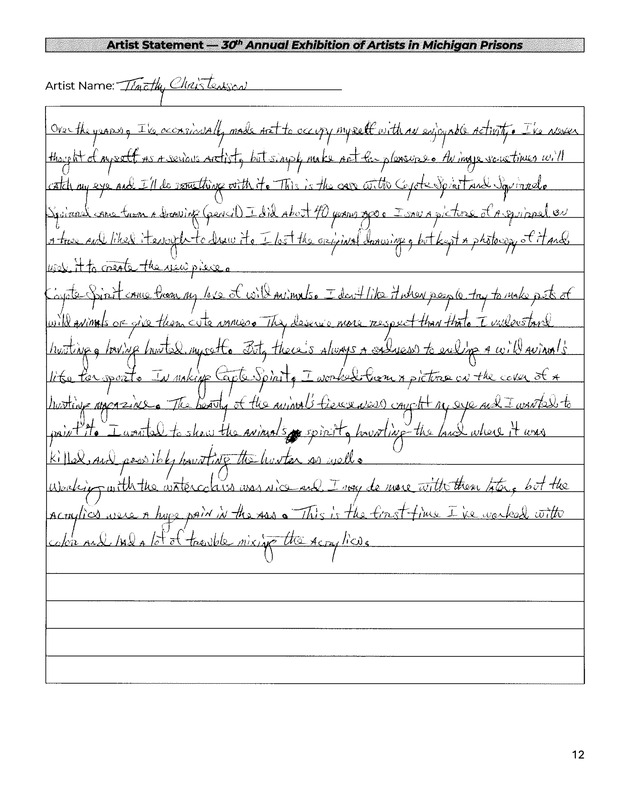 Artist Statement — 30th Annual Exhibition of Artists in Michigan Prisons
Artist Name: Timothy Christenson
Over the years, I've occasionally made art to occupy myself with an enjoyable activity. I've never
thought of myself as a serious artist, but simply make art for pleasure. An image sometimes will
catch my eye and I'll do something with it. This is the case with Coyote Spirit and Squirrel.
Squirrel came from a drawing (pencil) I did about 40 years ago. I saw a picture of a squirrel on
a tree and liked it enough to draw it. I lost the original drawing, but kept a photocopy of it and
used it to create the new piece.
Coyote Spirit came from my love of wild animals. I don't like it when people try to make pets of
wild animals or give them cute names. They deserve more respect than that. I understand
hunting, having hunted myself. But, there's always a sadness to ending a wild animal's
life for sport. In making Coyote Spirit, I worked from a picture on the cover of a
hunting magazine. The beauty of the animal's fierceness caught my eye and I wanted to
paint it. I wanted to show the animals spirit, haunting the land where it was
killed, and possibly haunting the hunter as well.
Working with the watercolors was nice and I may do more with them later, but the
acrylics were a huge pain in the ass. This is the first time I've worked with
color and had a lot of trouble mixing the acrylics.
12